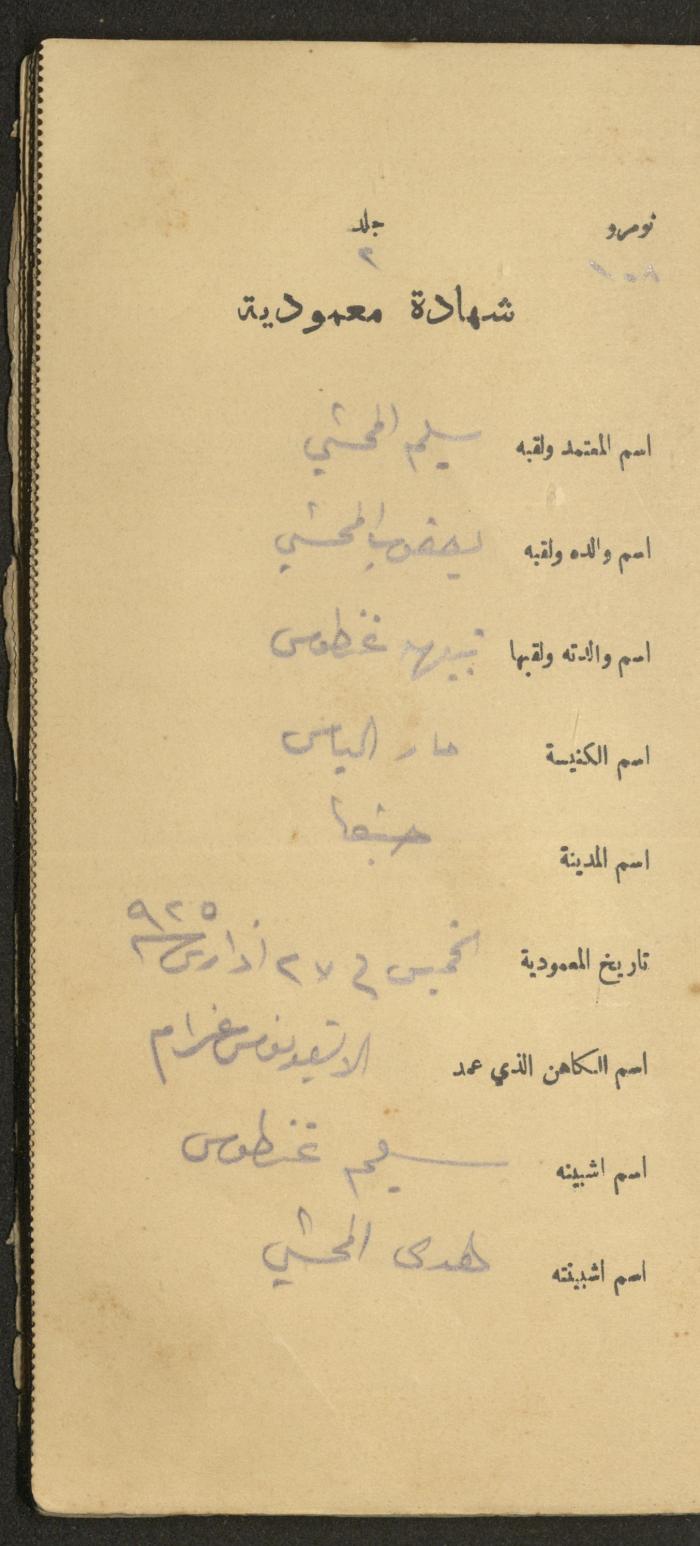 نومرو جلد
٢
شهادة معمودية
اسم المعتمد ولقبه سليم المحشي
اسم والده ولقبه يعقوب المحشي
اسم والدته ولقبها نبيهه غنطوس
اسم الكنيسة مار الياس
اسم المدينة
تاريخ المعمودية الخميس في ٢٧ اذار ٩٢٥
اسم الكاهن الذي عمد
اسم اشبينه سليم غنطوس
اسم اشبينته هدى المحشي